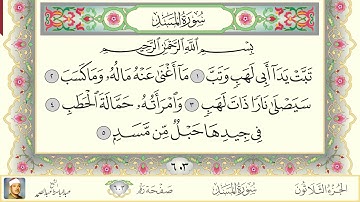 سُورَةُ المَسَدِ
بِسْمِ اللَّهِ الرَّحْمَٰنِ الرَّحِيمِ
تَبَّتْ يَدَآ أَبِى لَهَبٍ وَتَبَّ ١ مَآ أَغْنَىٰ عَنْهُ مَالُهُۥ وَمَا كَسَبَ ٢
سَيَصْلَىٰ نَارًا ذَاتَ لَهَبٍ ٣ وَٱمْرَأَتُهُۥ حَمَّالَةَ ٱلْحَطَبِ ٤
فِى جِيدِهَا حَبْلٌ مِّن مَّسَدٍۭ ٥
٦٠٣
الجُزْءُ الثَّلَاثُونَ
سُورَةُ المَسَدِ
صَفْحَة رَقم ٦٠٣